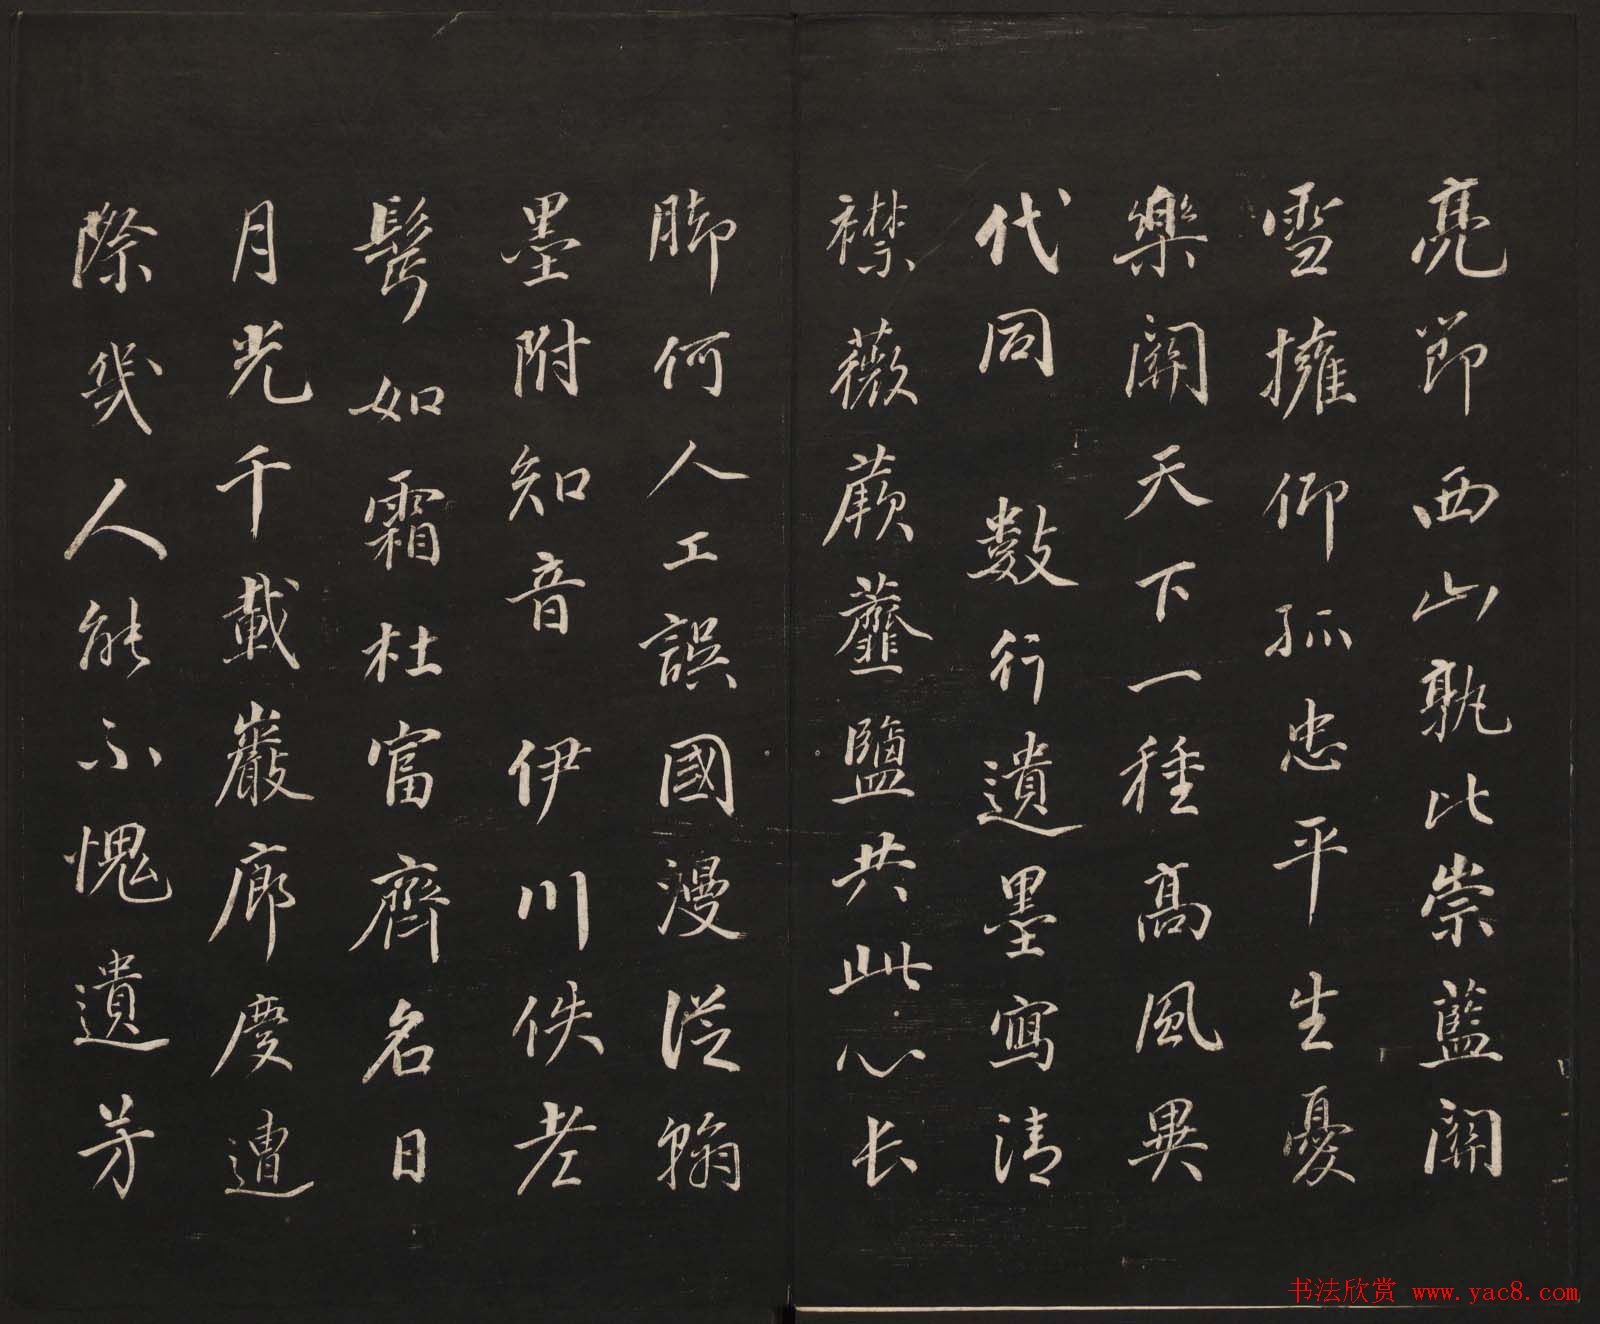 亮節西山孰比崇藍關
雪擁仰孤忠平生憂
樂關天下一種髙風異
代同 數行遺墨寫清
襟薇蕨虀鹽共此心长
脚何人工誤國漫從翰
墨附知音 伊川佚老
鬢如霜杜富齊名日
月光千載巖廊慶遭
際幾人能不愧遺芳
书法欣赏 www.yac8.com